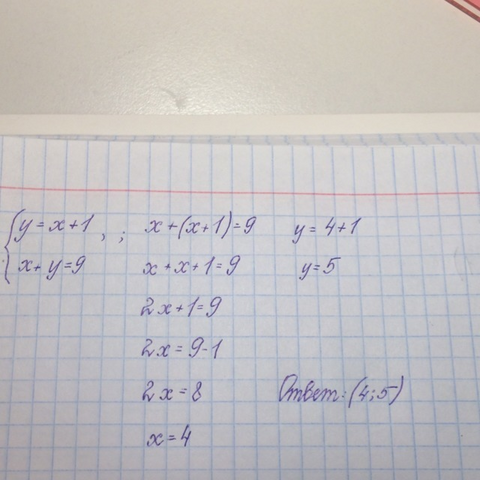 {y = x+1, ;
x+y=9
x+(x+1)=9
x+x+1=9
2x+1=9
2x=9-1
2x=8
x=4
y=4+1
y=5
Ответ: (4;5)